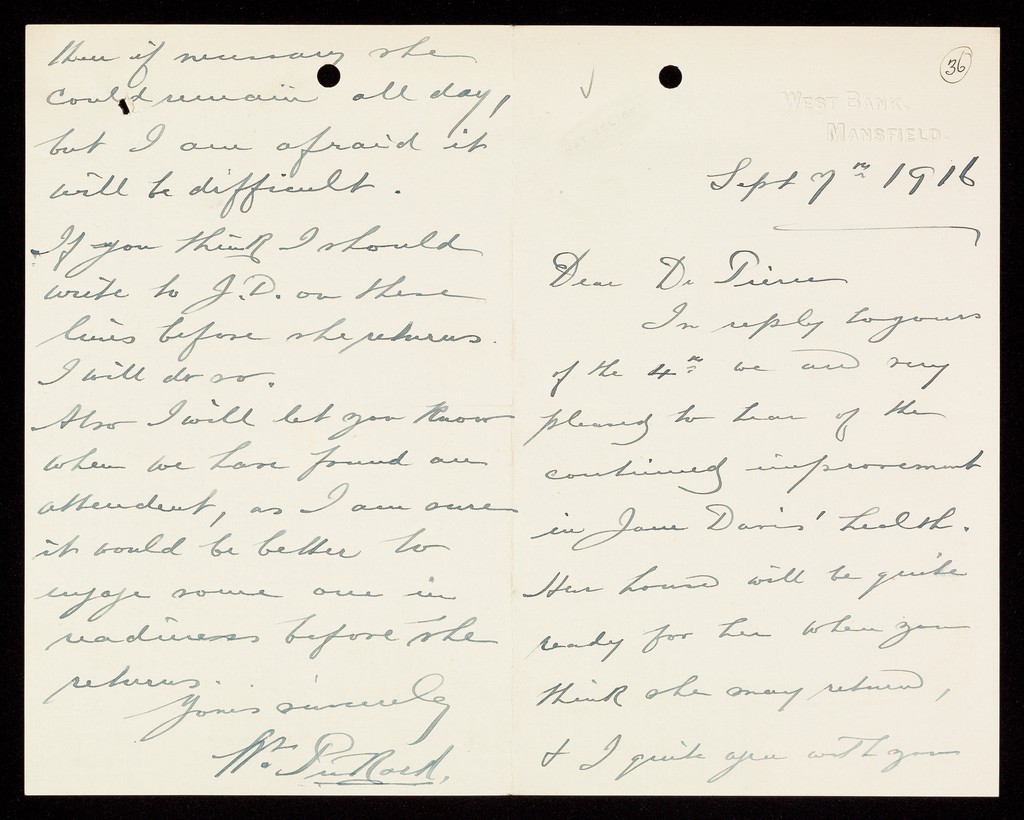 36
WEST BANK.
MANSFIELD.
Sept 7th 1916
Dear Dr Pierce
In reply to yours
of the 4th we are very
pleased to hear of the
continued improvement
in Jane Davis' health.
Her house will be quite
ready for her when you
think she may return,
& I quite agree with you
then if necessary she
could remain all day,
but I am afraid it
will be difficult.
If you think I should
write to J.D. on these
lines before she returns.
I will do so.
Also I will let you know
when we have found an
attendent, as I am sure
it would be better to
engage some one in
readiness before she
returns.
Yours sincerely
Wm